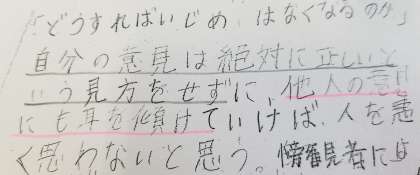 「どうすればいじめはなくなるのか」
自分の意見は絶対に正しいと
いう見方をせずに、他人の意見
にも耳を傾けていけば、人を悪
く思わないと思う。傍観者には